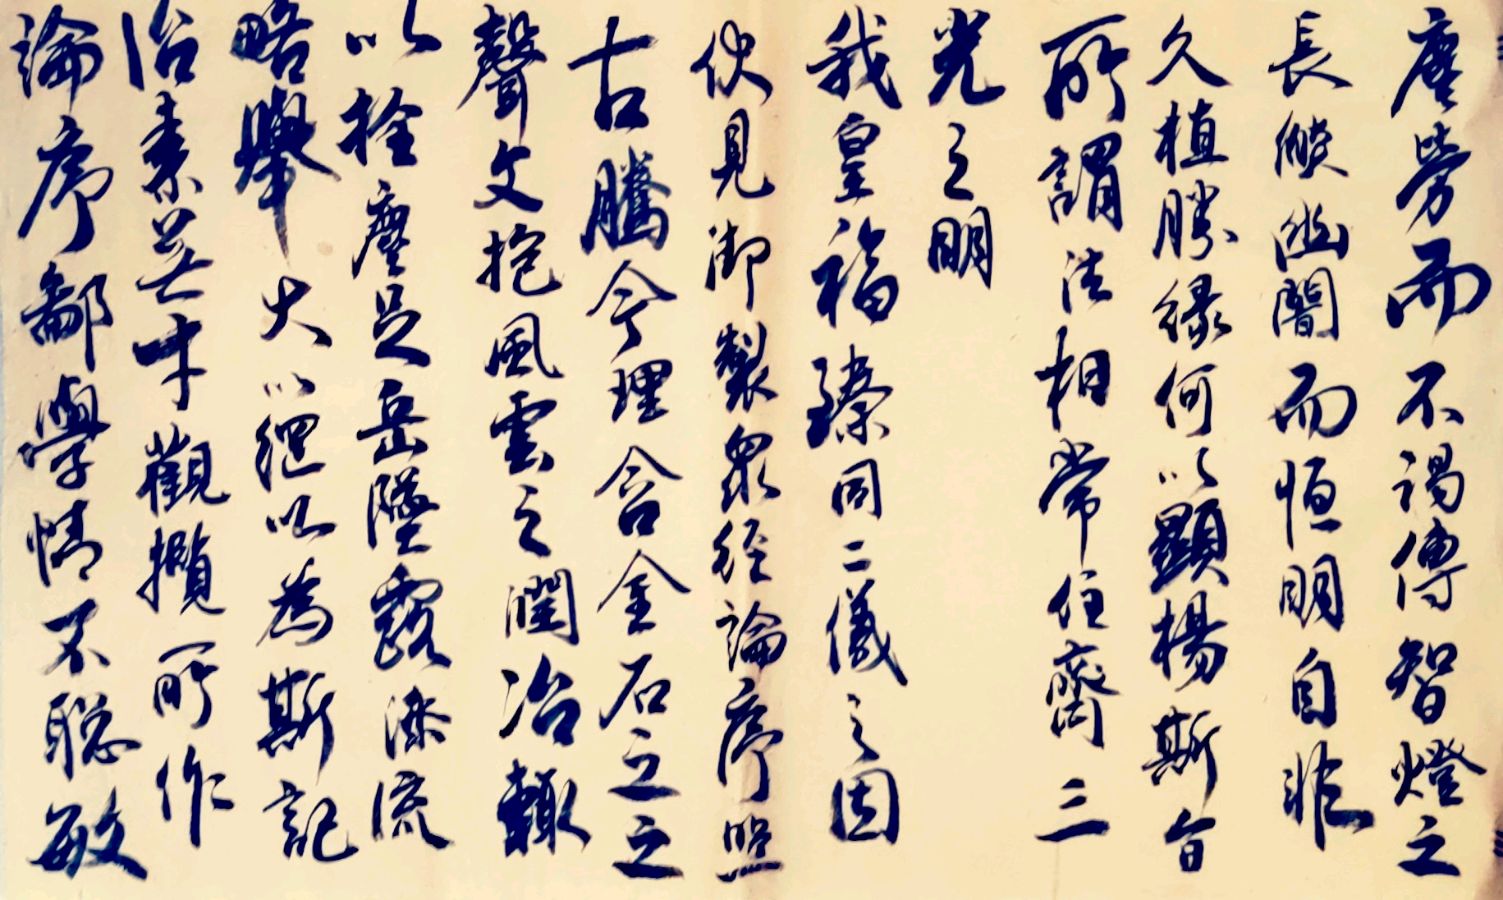 塵勞而不竭傳智燈之
長燄幽闇而恒明自非
久植勝緣何以顯揚斯旨
所謂法相常住齊三
光之明
我皇福臻同二儀之固
伏見御製眾經論序照
古騰今理含金石之
聲文抱風雲之潤治輒
以輕塵足岳墜露添流
略舉大綱以為斯記
治素無才觀攬所作
論序鄙學情不聰敏